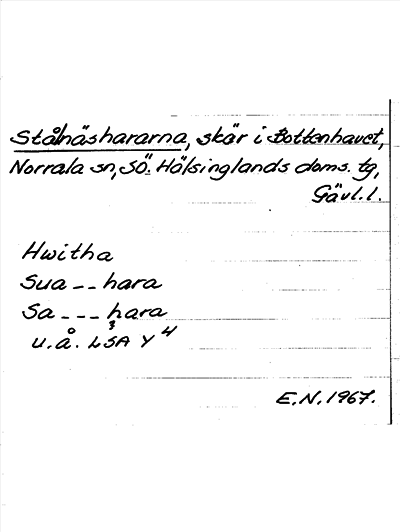 Stålnäshararna, skär i Bottenhavet,
Norrala sn, SÖ. Hälsinglands doms. tg,
Gävl. l.
Hwitha
Sua -- hara
Sa --- hara
u. å. LSA Y³ 4
E.N. 1967.